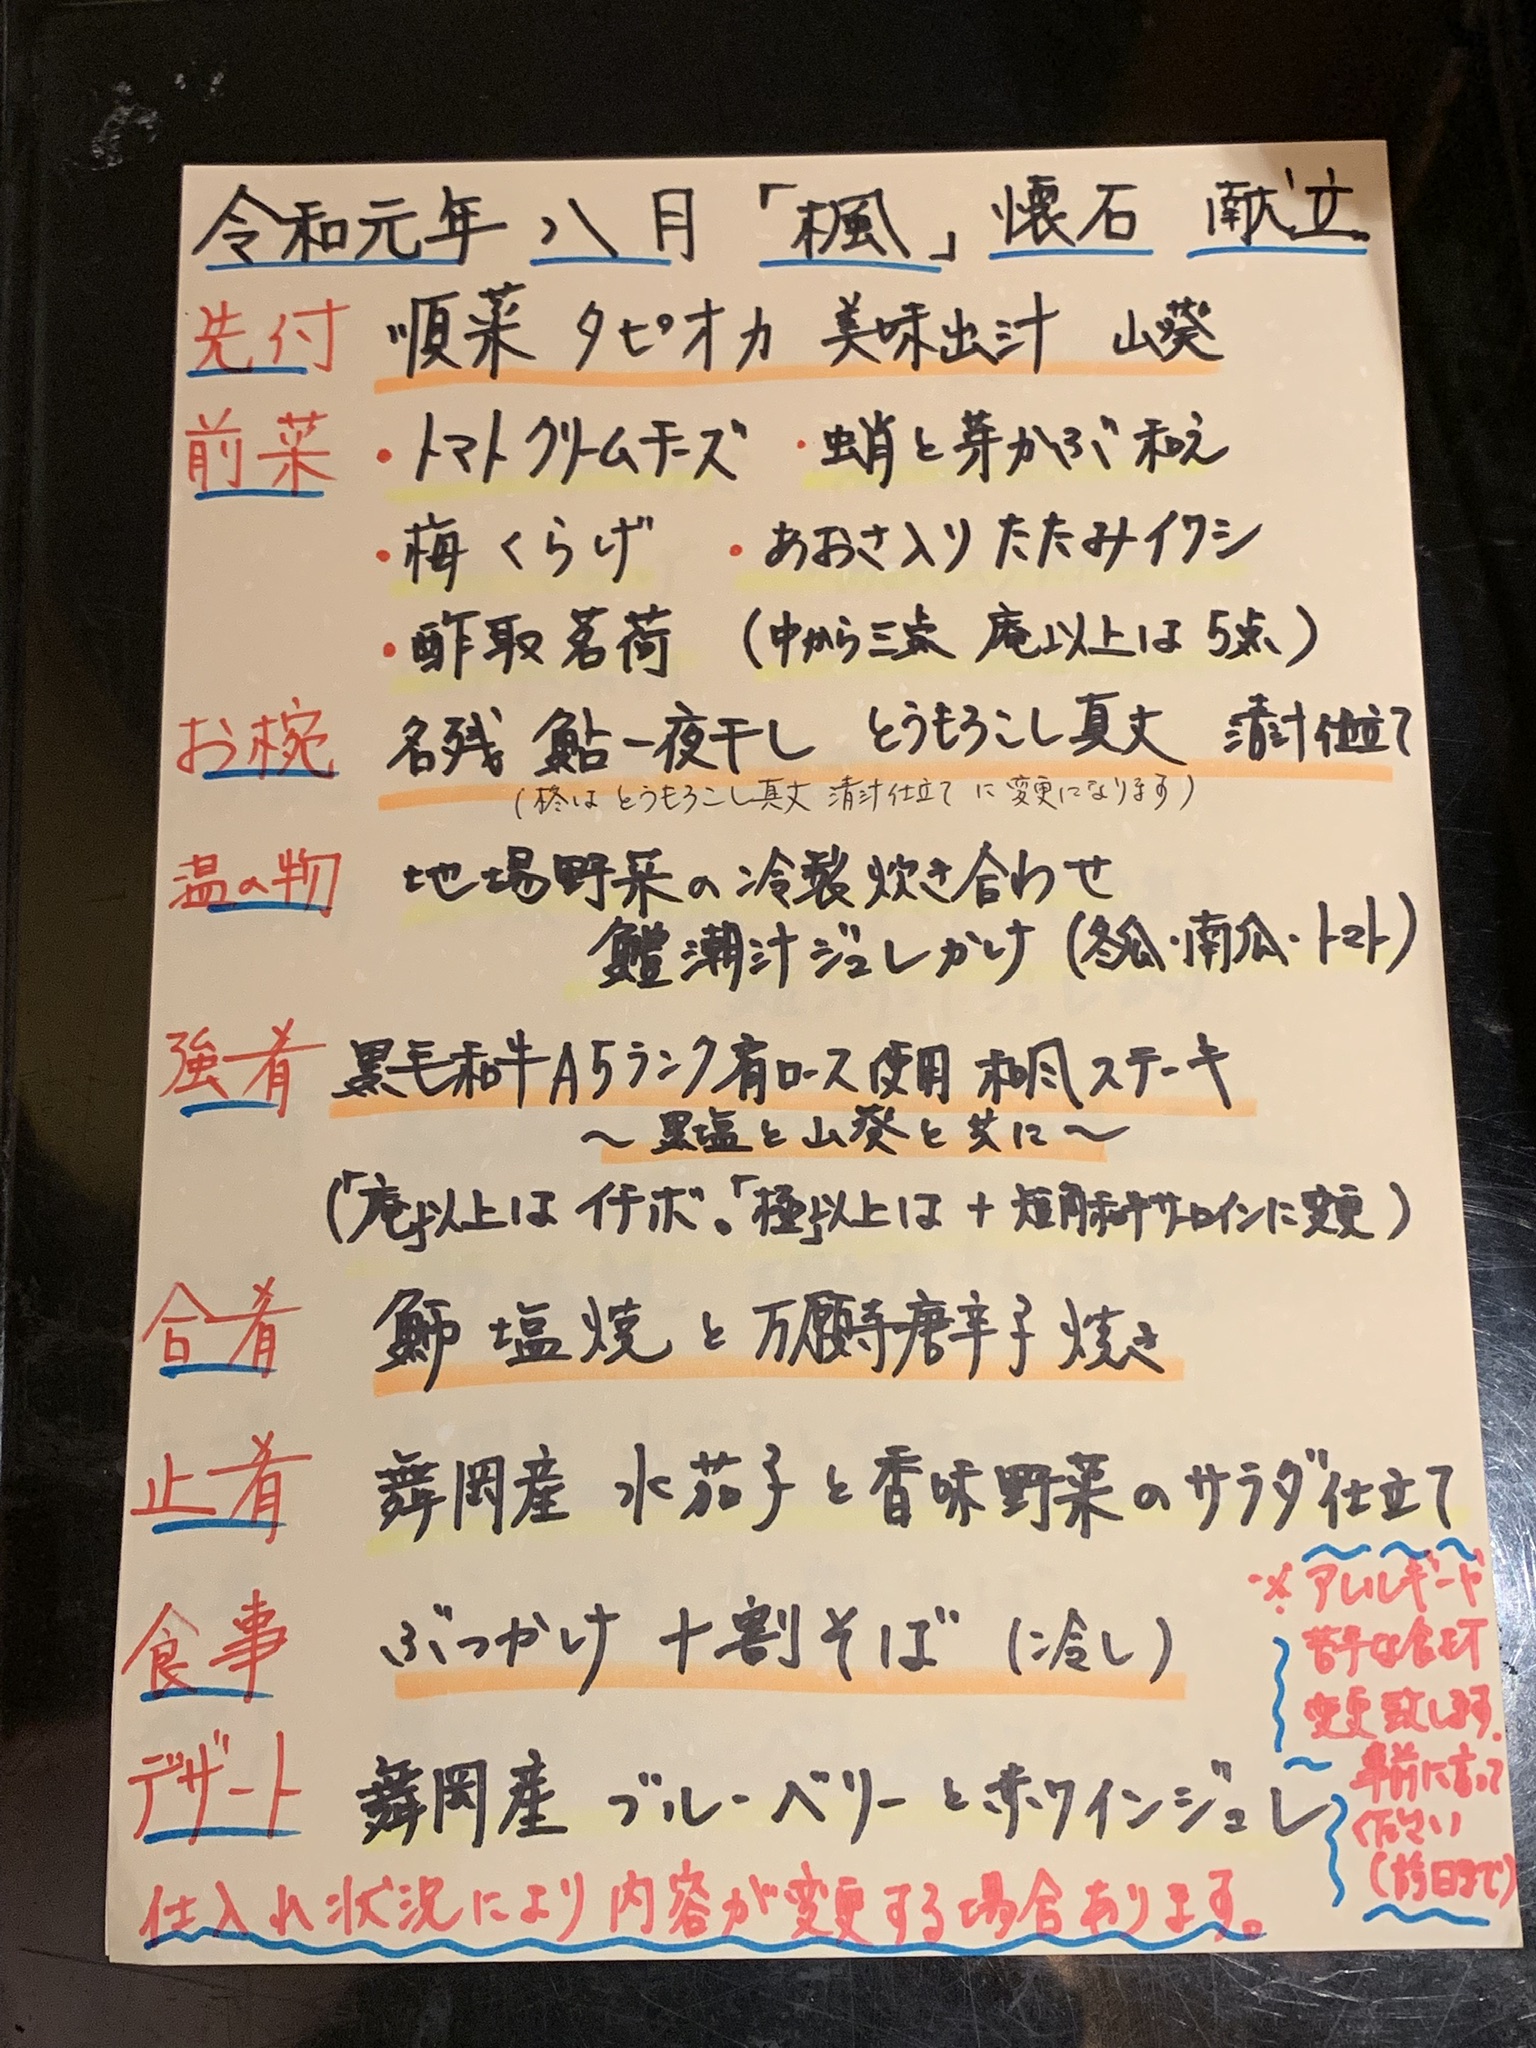 令和元年 八月「楓」懐石 献立
先付 順菜 タピオカ 美味出汁 山葵
前菜 ・トマトクリームチーズ ・蛸と芽かぶ和え
・梅くらげ ・あおさ入りたたみイワシ
・酢取茗荷 (中から三点 庵以上は5点)
お椀 名残 鮎一夜干し とうもろこし真丈 清汁仕立て
(柊はとうもろこし真丈 清汁仕立てに変更になります)
温の物 地場野菜の冷製炊き合わせ
鱧潮汁ジュレかけ(冬瓜・南瓜・トマト)
強肴 黒毛和牛A5ランク肩ロース使用 和風ステーキ
〜黒塩と山葵と共に〜
(「庵」以上はイチボ。「極」以上は+短角和牛サーロインに変更)
合肴 鰤塩焼と万願寺唐辛子焼き
止肴 舞岡産 水茄子と香味野菜のサラダ仕立て
食事 ぶっかけ十割そば(冷し)
デザート 舞岡産 ブルーベリーと赤ワインジュレ
※アレルギーや
苦手な食材
変更致します。
事前に言って
ください
(前日まで)
仕入れ状況により内容が変更する場合あります。